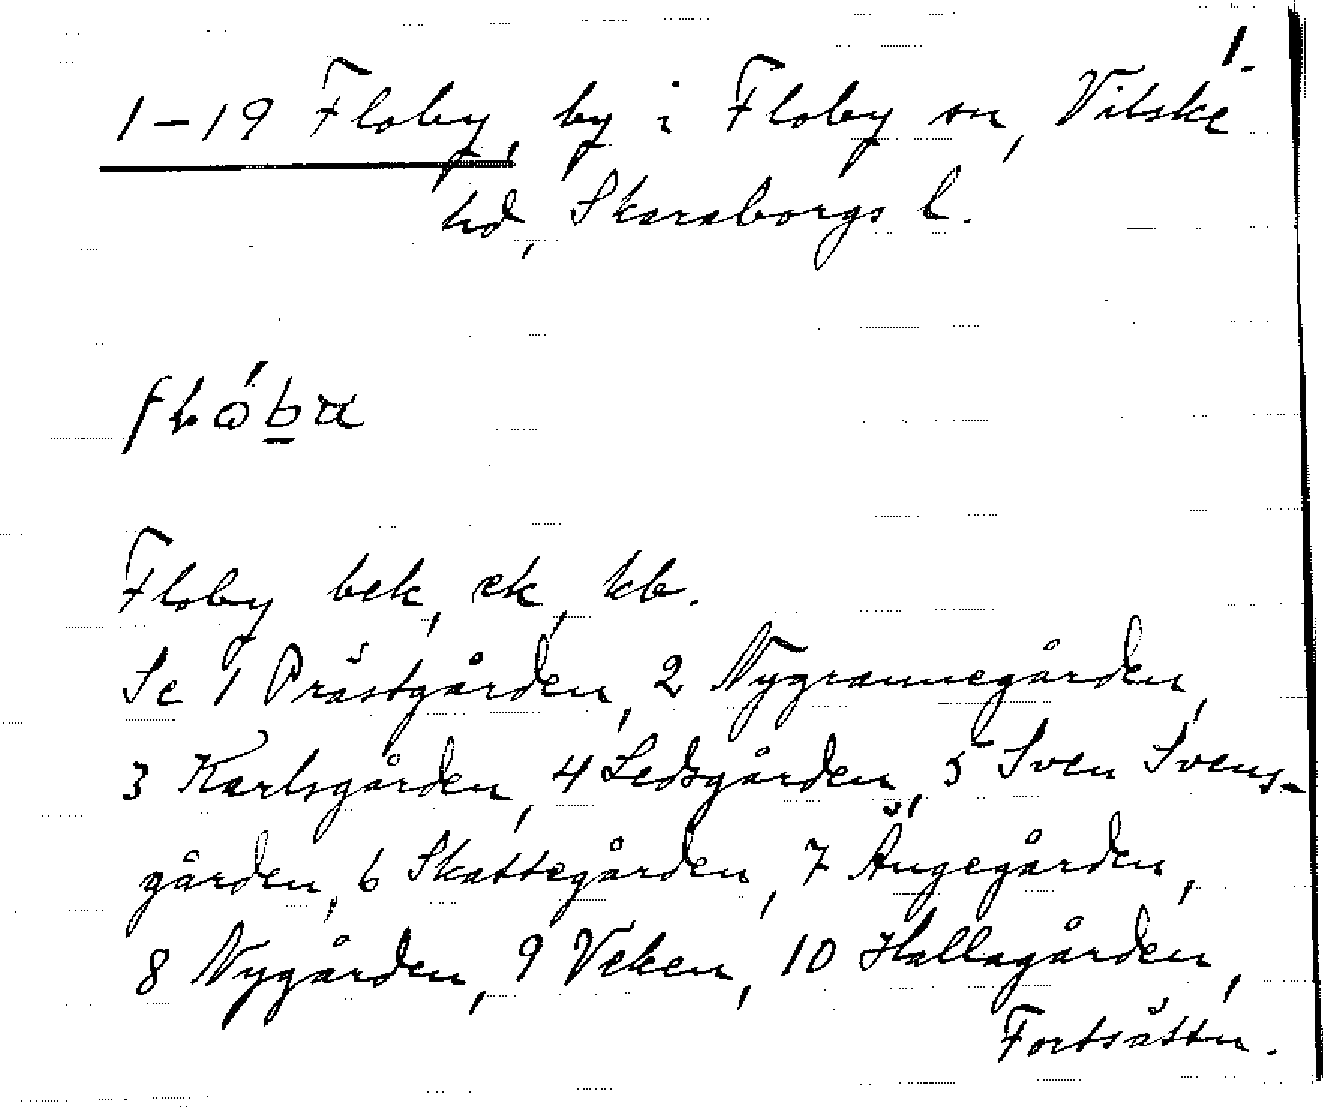 1.
1-19 Floby, by i Floby sn, Vilske
hd, Skaraborgs l.
Floby bek, ek, kb.
Se 1 Prästgården, 2 Nygrannegården,
3 Karlsgården, 4 Ledsgården, 5 Sven Svens-
gården, 6 Skattegården, 7 Ängegården,
8 Nygården, 9 Veken, 10 Hallagården,
Fortsättn.